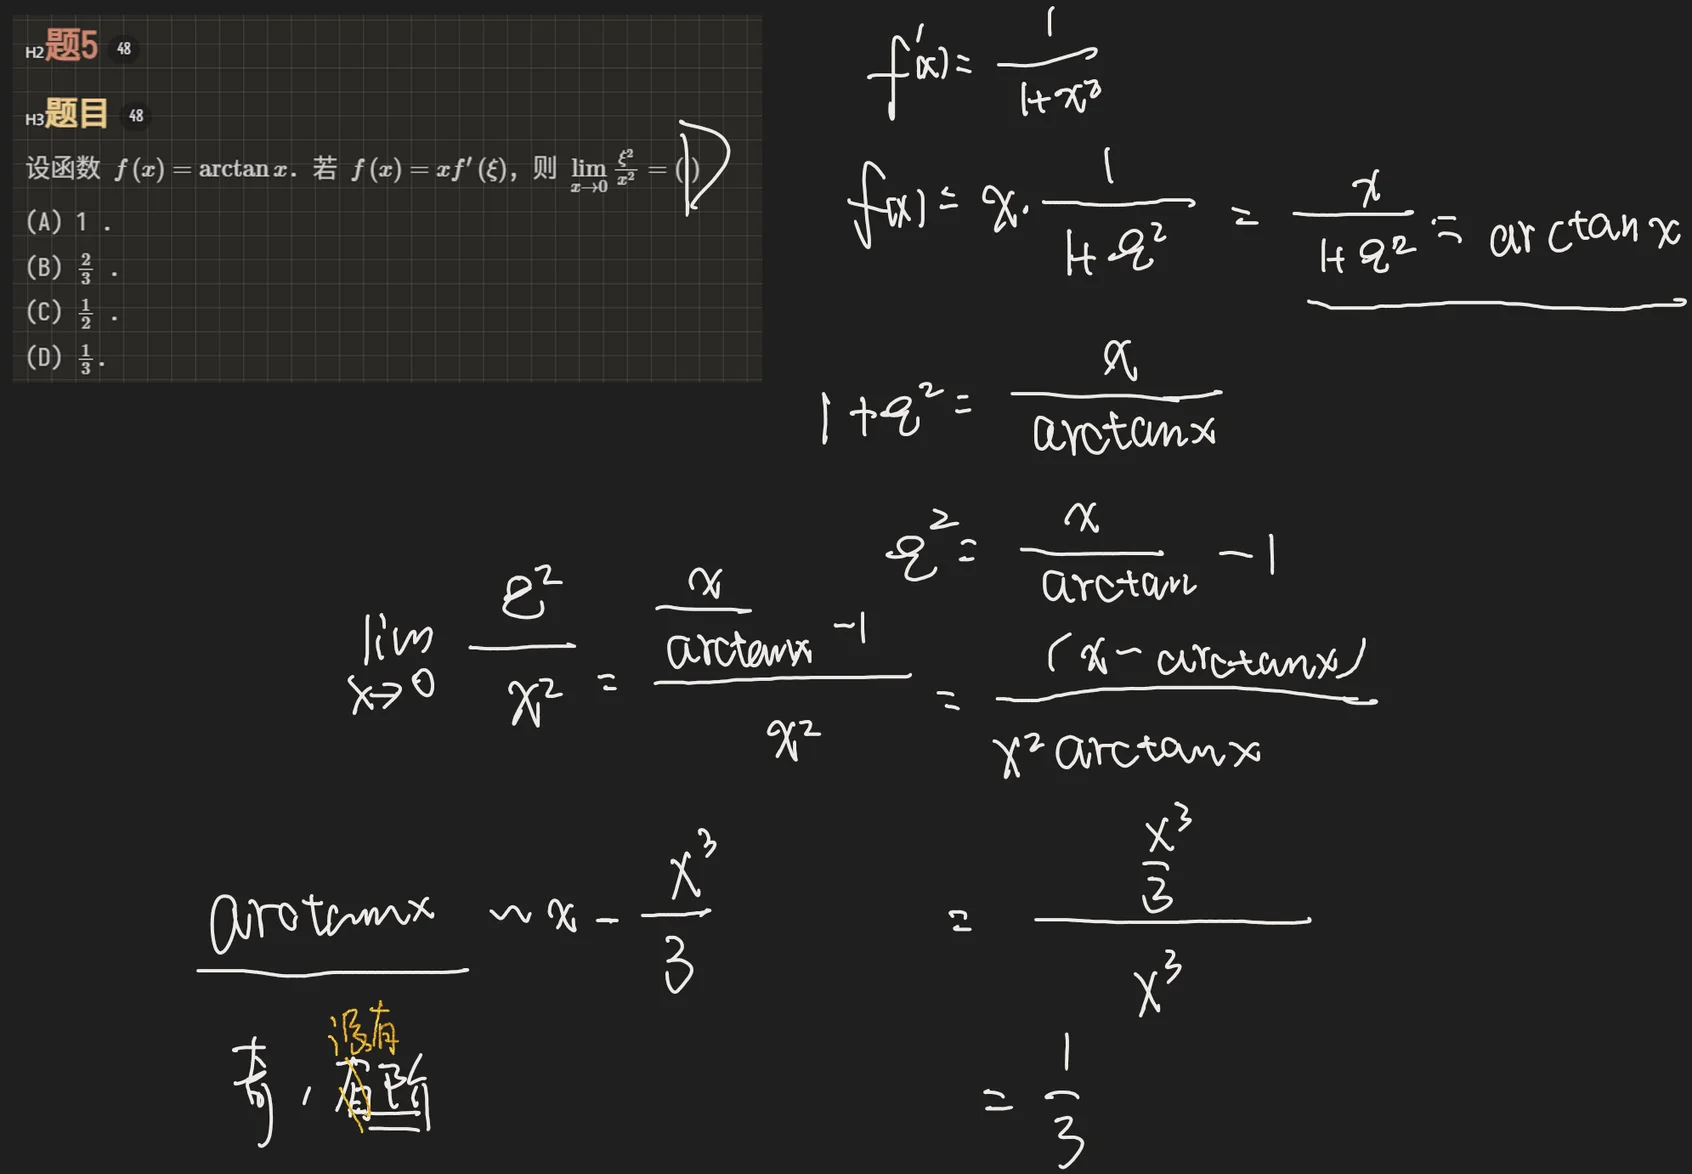 H2题5 48
H3题目 48
设函数 f(x) = arctan x. 若 f(x) = xf′(ξ), 则 lim_{x→0} ξ²/x² = ( ) D
(A) 1 .
(B) 2/3 .
(C) 1/2 .
(D) 1/3.
f′(x) = 1/(1+x²)
f(x) = x · 1/(1+ξ²) = x/(1+ξ²) = arctan x
1+ξ² = x/arctanx
ξ² = x/arctan − 1
lim_{x→0} ξ²/x² = (x/arctanx − 1)/x² = (x − arctanx)/(x² arctanx)
arctanx ~ x − x³/3
= (x³/3)/x³
没有
奇, 有阶
= 1/3